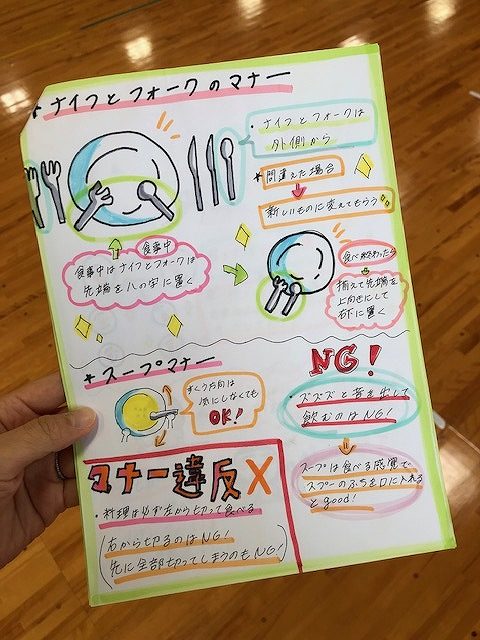 ★ナイフとフォークのマナー
・ナイフとフォークは
外側から
★間違えた場合
新しいものに変えてもらう
食事中
食事中はナイフとフォークは
先端を八の字に置く
食べ終わったら
揃えて先端を
上向きにして
右下に置く
★スープマナー
すくう方向は
気にしなくても
OK!
NG!
・ズズズと音を出して
飲むのはNG!
スープは食べる感覚で
スプーンのふちを口に入れる
とgood!
マナー違反X
・料理は必ず左から切って食べる
(右から切るのはNG!
先に全部切ってしまうのもNG!)